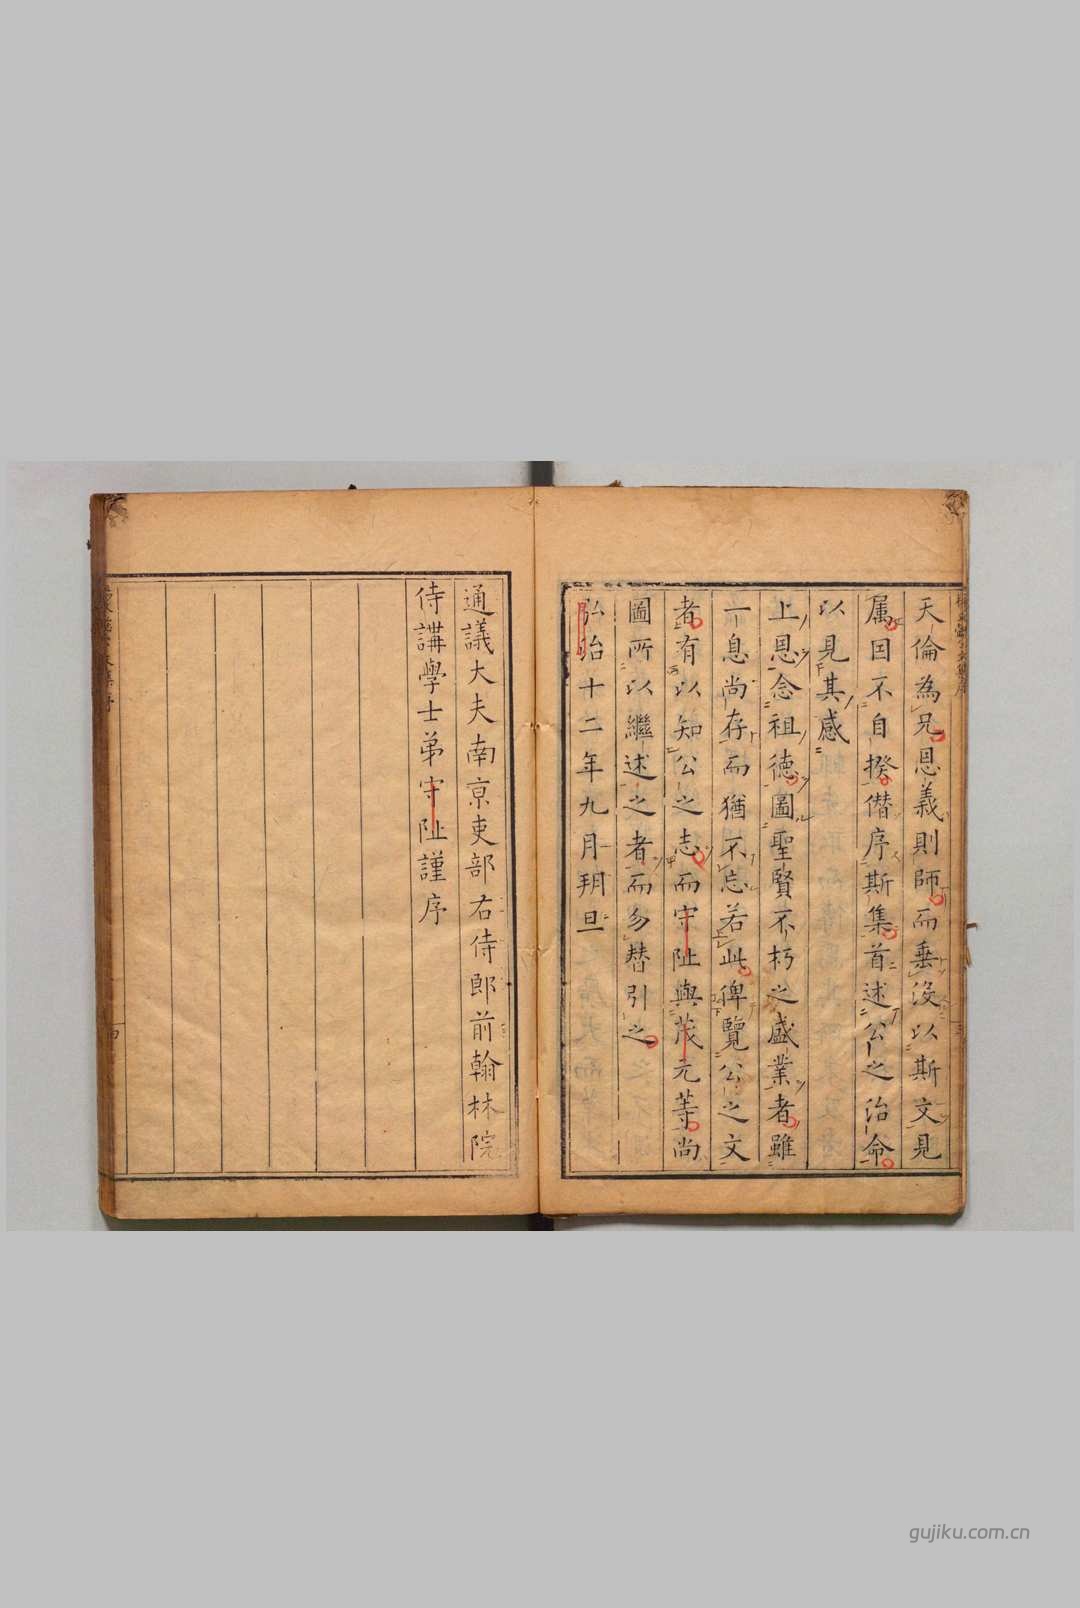 天倫為兄恩義則師而垂没以斯文見
属因不自揆僭序斯集首述公之治命
以見其感
上恩念祖徳圖聖賢不朽之盛業者雖
一息尚存而猶不忘若此俾覽公之文
者有以知公之志而守阯與茂元等尚
圖所以繼述之者而勿替引之
弘治十二年九月朔旦
通議大夫南京吏部右侍郎前翰林院
侍講學士弟守阯謹序
gujiku.com.cn